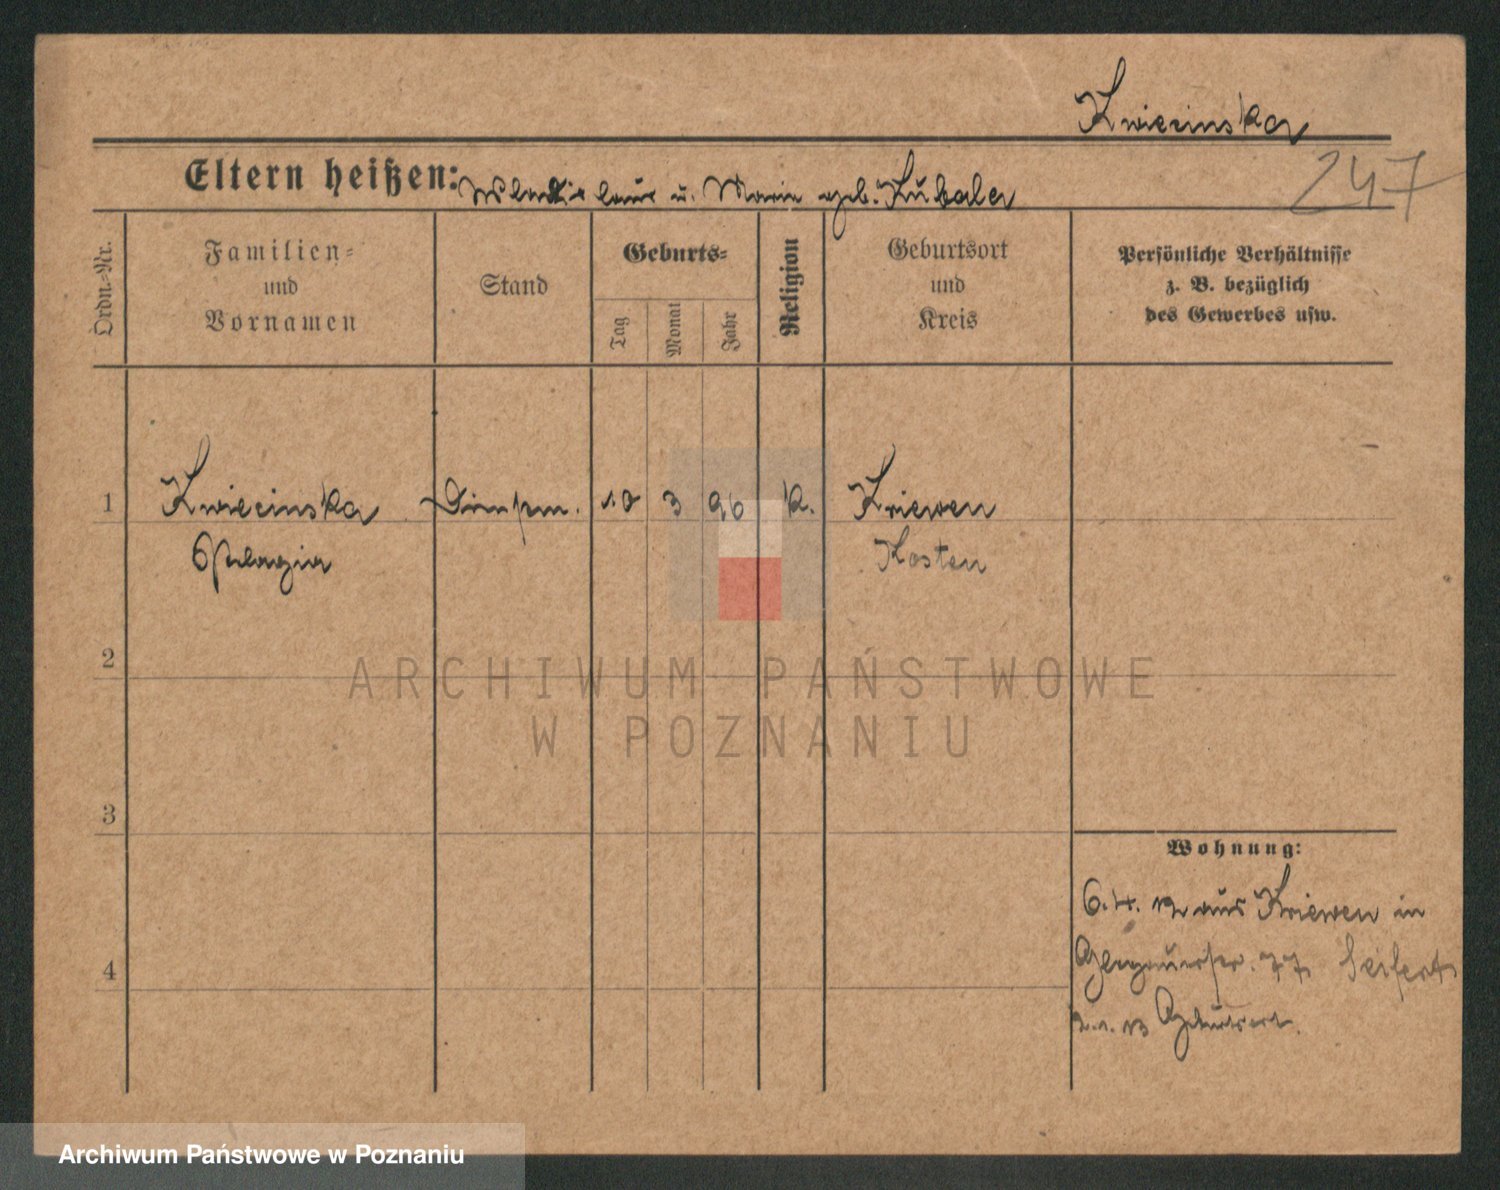 Kwiecinska
Eltern heißen: Wladislaus u. Marie geb. Kubala
247
Ordn.-Nr.
Familien-
und
Vornamen
Stand
Geburts-
Tag
Monat
Jahr
Religion
Geburtsort
und
Kreis
Persönliche Verhältnisse
z. B. bezüglich
des Gewerbes usw.
1 Kwiecinska 10 3 96 k. Kriewen
Pelagia Kosten
2
3
4
Wohnung:
6.4. 12 aus Kriewen in
Glogauerstr. 77 Seifert
2.1.13 Geburtsort.
ARCHIWUM PAŃSTWOWE
W POZNANIU
Archiwum Państwowe w Poznaniu